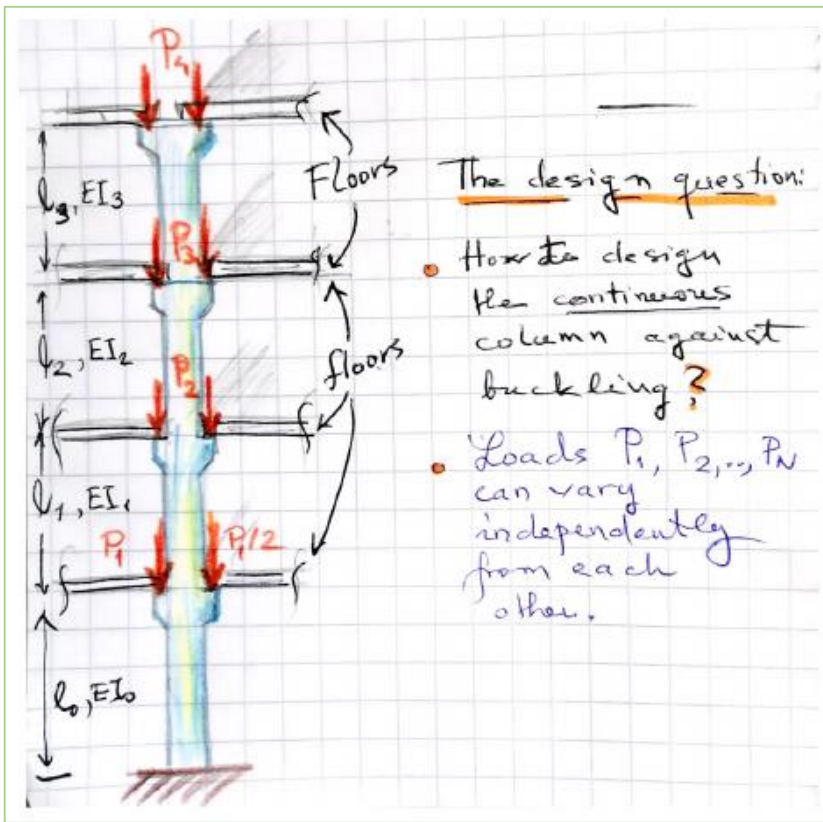 P₄
l₃, EI₃
Floors
P₃
l₂, EI₂
floors
P₂
l₁, EI₁
P₁
P₁/2
l₀, EI₀
The design question:
• How to design
the continuous
column against
buckling?
• Loads P₁, P₂, .., P_N
can vary
independently
from each
other.